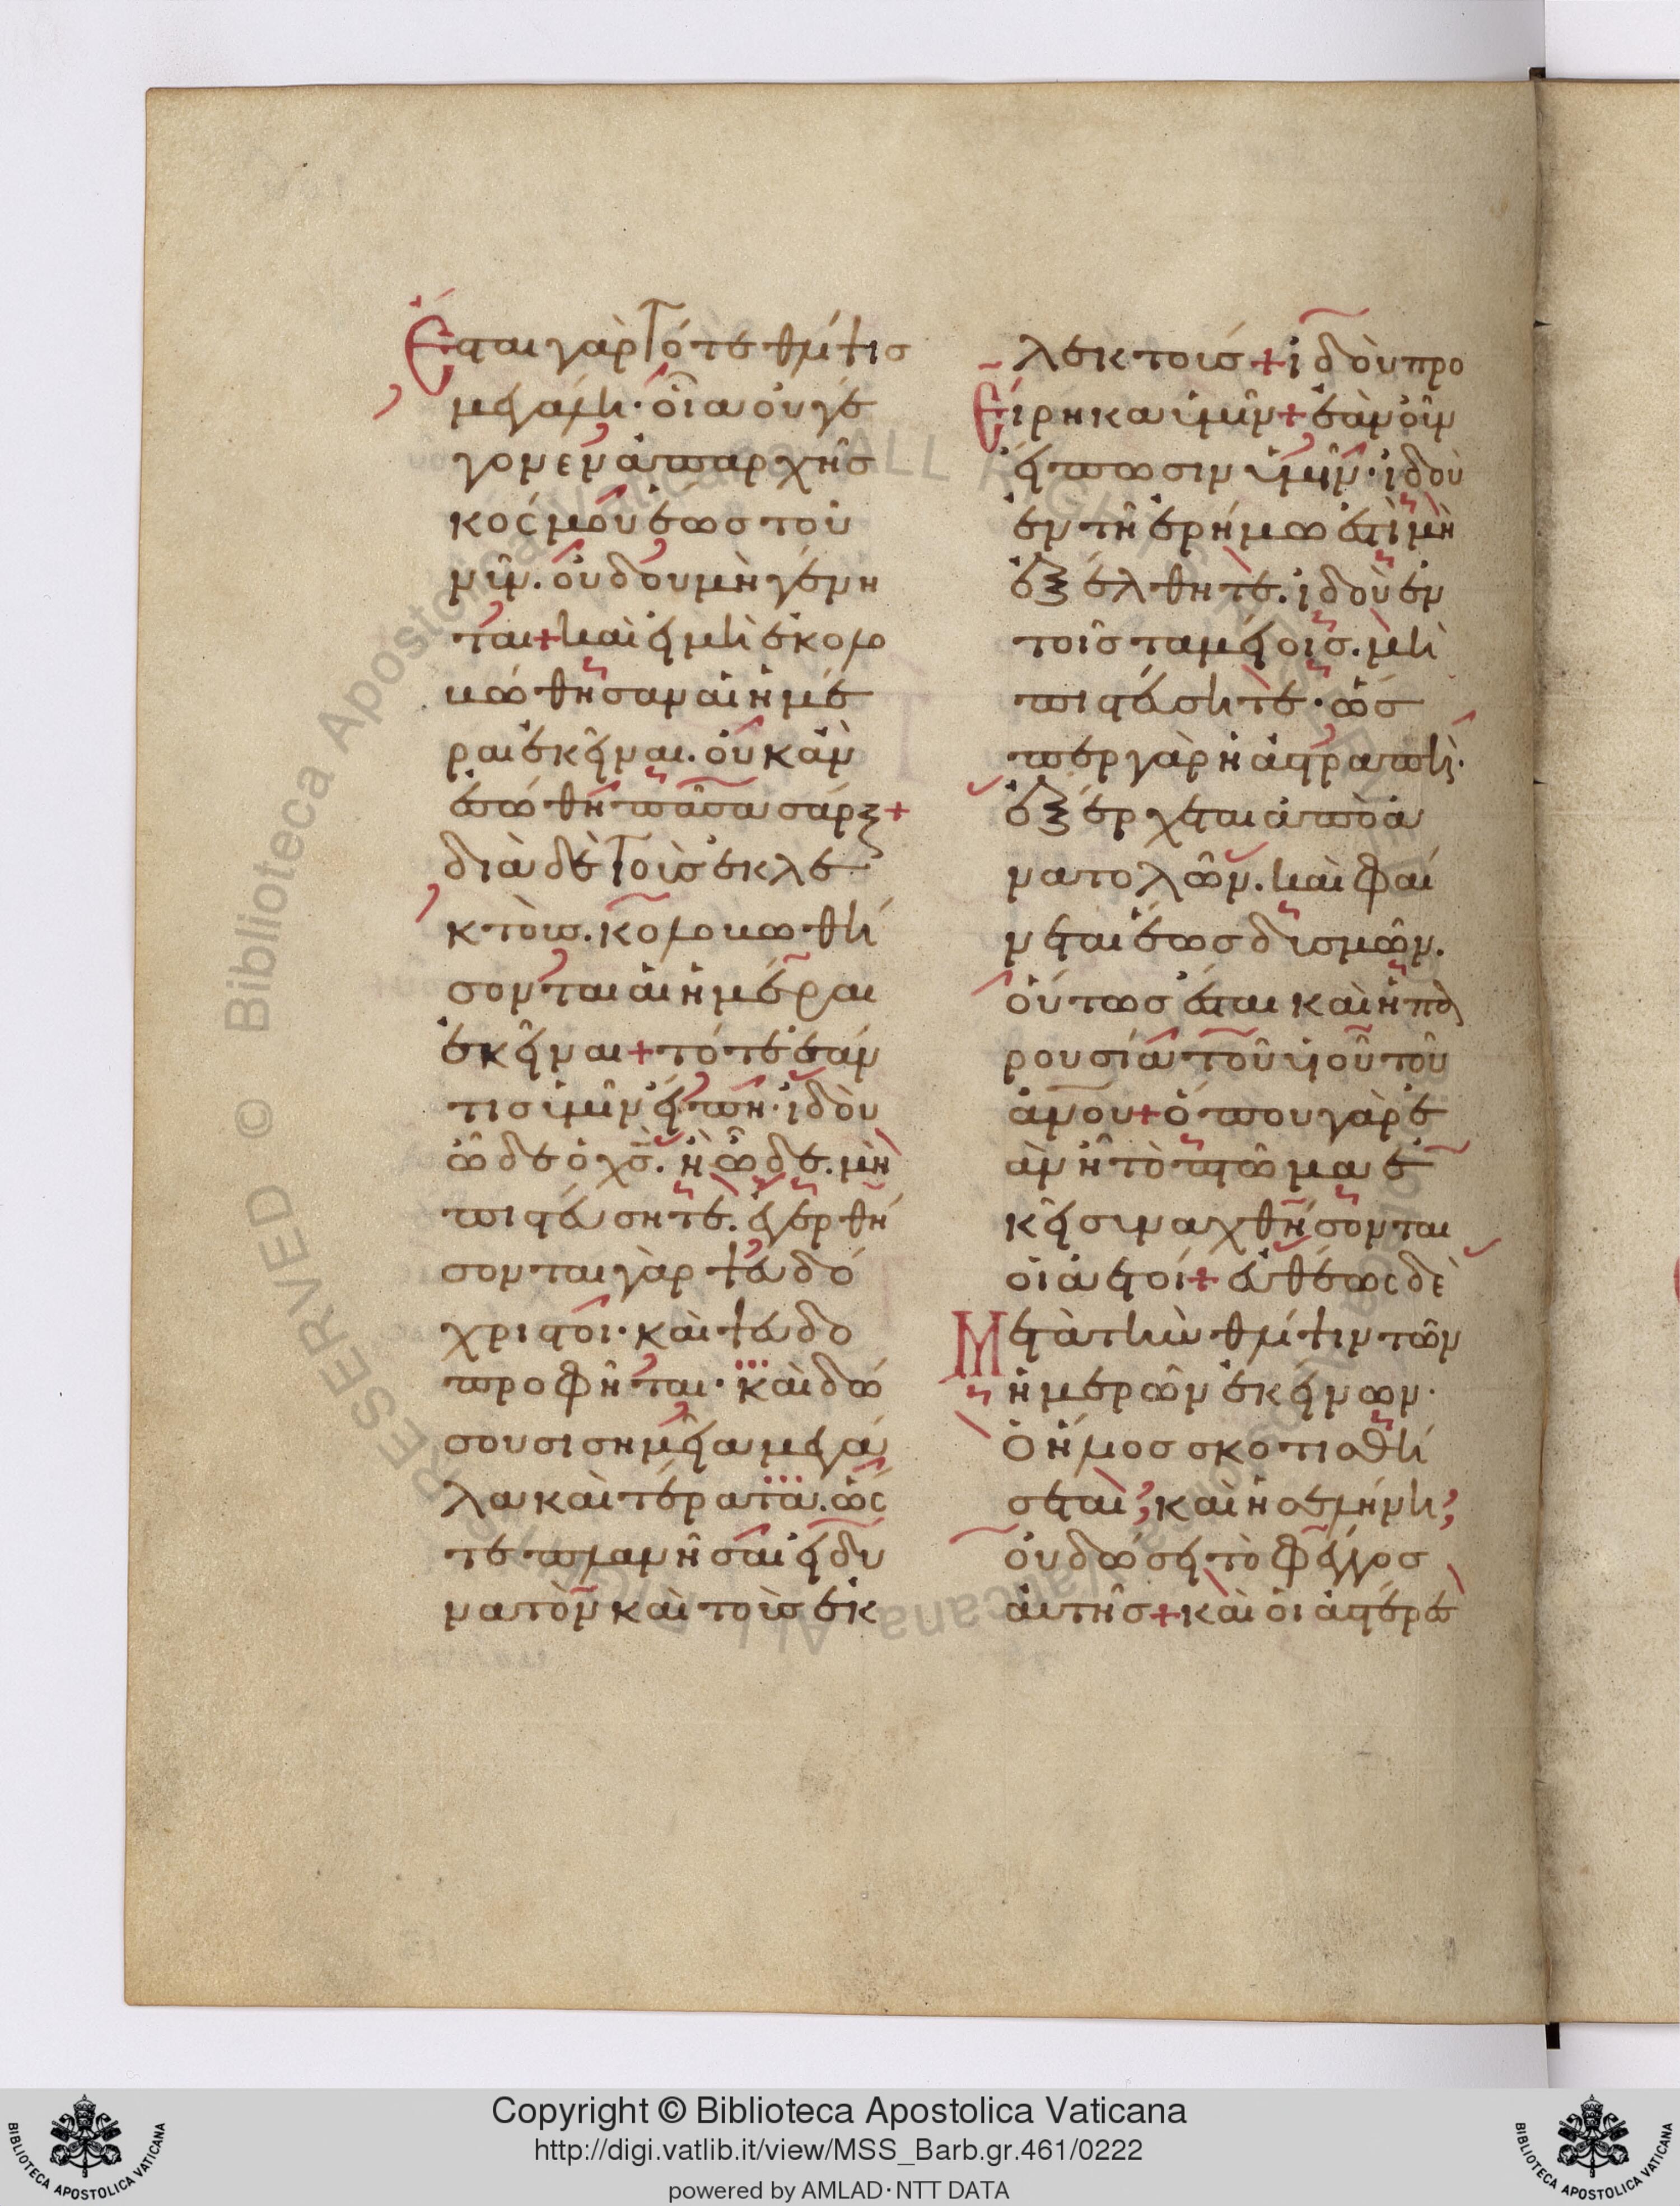 Ἔσται γὰρ τότε θλίψις
μεγάλη· οἵα οὐ γέ
γονεν ἀπαρχῆς
κόσμου ἕως τοῦ
νῦν. οὐδ οὐ μὴ γένη
ται + καὶ εἰ μὴ ἐκολο
βώθησαν αἱ ἡμέ
ραι ἐκεῖναι. οὐκ ἂν
ἐσώθη πᾶσα σάρξ +
διὰ δὲ τοὺς ἐκλε
κτούς. κολοβωθή
σονται αἱ ἡμέραι
ἐκεῖναι + τότε ἐάν
τις ὑμῖν εἴπη· ἰδοὺ
ὧδε ὁ χς. ἢ ὧδε. μὴ
πιστεύσητε. ἐγερθή
σονται γὰρ ψευδό
χριστοι· καὶ ψευδο
προφῆται· καὶ δώ
σουσι σημεῖα μεγά
λα καὶ τέρατα. ὥς
τε πλανῆσαι εἰ δυ
νατὸν καὶ τοὺς ἐκ
λεκτούς + ἰδοὺ προ
είρηκα ὑμῖν + ἐὰν οὖν
εἴπωσιν ὑμῖν· ἰδοὺ
ἐν τῆ ἐρήμω ἐστὶ μὴ
ἐξέλθητε. ἰδοὺ ἐν
τοῖς ταμείοις. μὴ
πιστεύσητε· ὥσ
περ γὰρ ἡ ἀστραπὴ·
ἐξέρχεται ἀπὸ ἀ
νατολῶν. καὶ φαί
νεται ἕως δυσμῶν.
οὕτως ἔσται καὶ ἡ πα
ρουσία τοῦ υἱοῦ τοῦ
ἀνου + ὅπου γὰρ ἐ
ὰν ἦ τὸ πτῶμα ἐ
κεῖ συναχθήσονται
οἱ ἀετοί + εὐθέως δὲ
Μετὰ τὴν θλίψιν τῶν
ἡμερῶν ἐκείνων·
ὁ ἥλιος σκοτισθή
σεται, καὶ ἡ σελήνη,
οὐ δώσει τὸ φέγγος
αὐτῆς + καὶ οἱ ἀστέρες
Copyright © Biblioteca Apostolica Vaticana
http://digi.vatlib.it/view/MSS_Barb.gr.461/0222
powered by AMLAD·NTT DATA